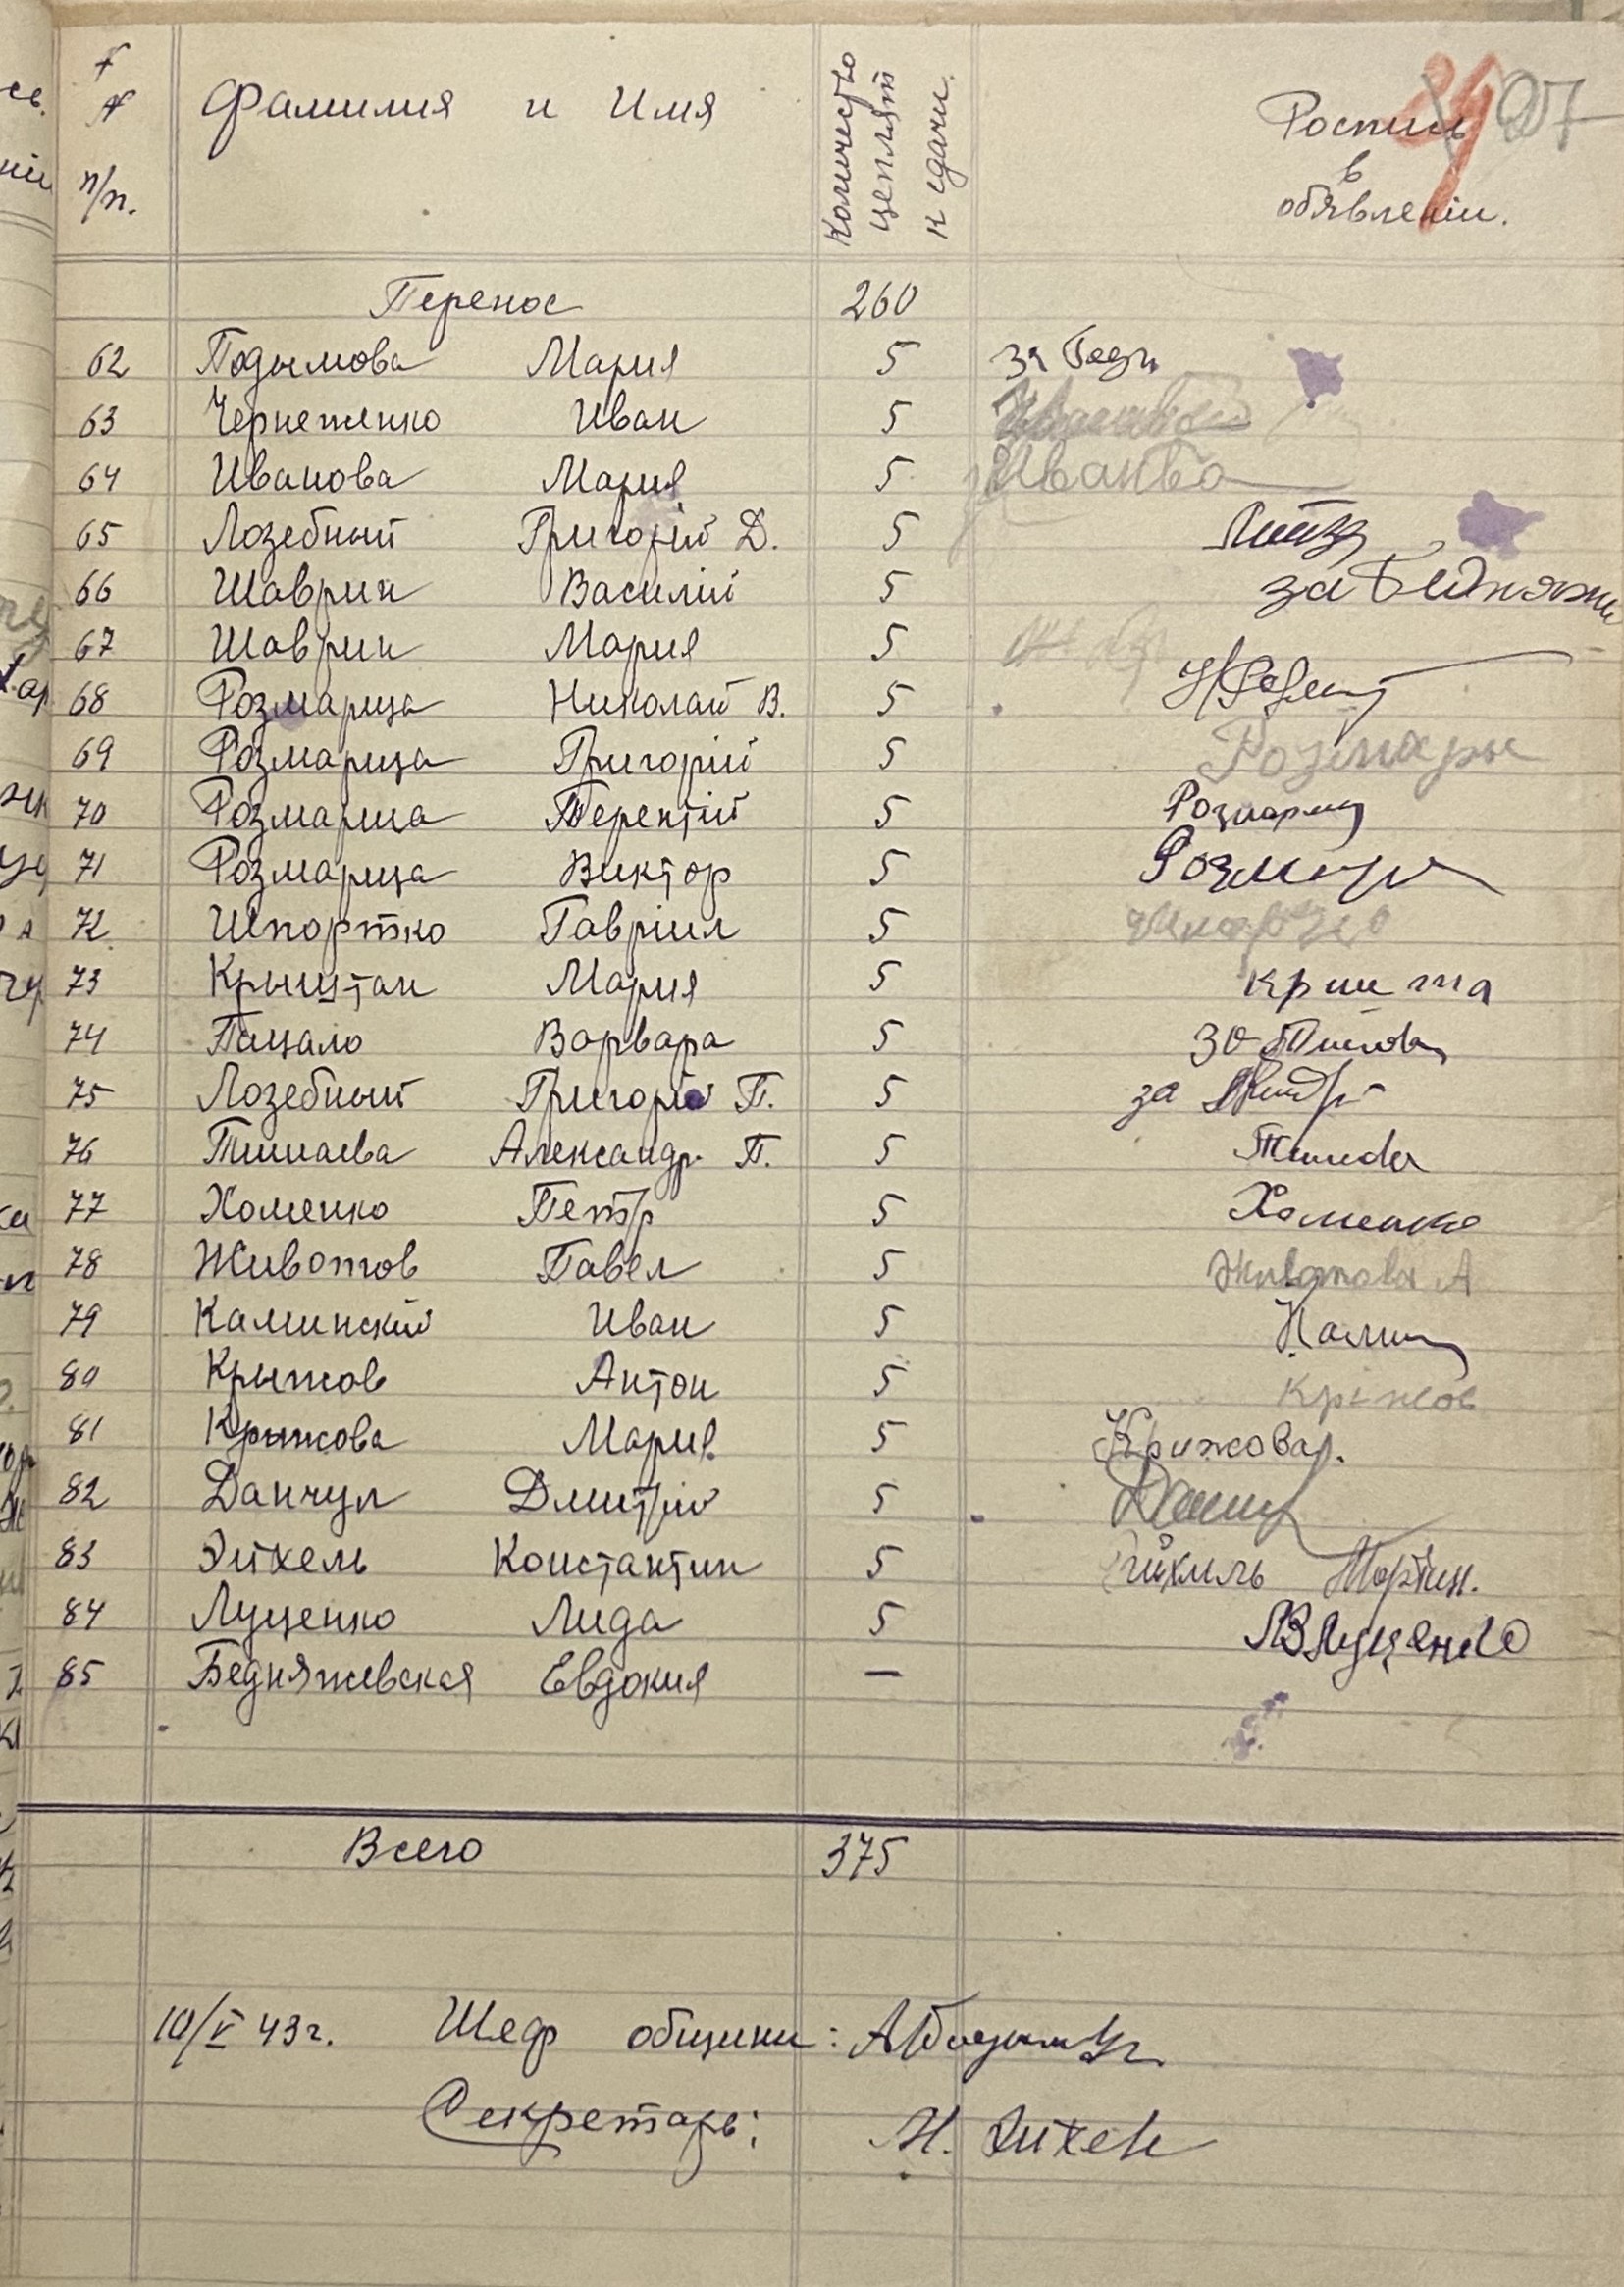 № п/п. Фамилия и Имя Количество цеплят к сдачи. Роспись в обявленіи. 207
Перенос 260
62 Подымова Мария 5 за
63 Чернеженко Иван 5
64 Иванова Мария 5 Иванва
65 Лозебный Григорій Д. 5
66 Шаврин Василій 5 за
67 Шаврин Мария 5
68 Розмарица Николай В. 5
69 Розмарица Григорий 5 Розмары
70 Розмарица Терентій 5 Розмариц
71 Розмарица Виктор 5
72 Шпортко Гавріил 5
73 Крыштан Мария 5 Кришта
74 Пацало Варвара 5 за
75 Лозебный Григорій П. 5 за
76 Тишаева Александр. П. 5
77 Хоменко Петр 5 Хоменко
78 Животов Павел 5 Животова А
79 Каминский Иван 5 Камин
80 Крыжов Антон 5 Крыжов
81 Крыжова Мария. 5 Крижова
82 Данчул Дмитрій 5
83 Эйхель Константин 5 Мартин.
84 Луценко Лида 5 Луценко
85 Бедняжевская Евдокия —
Всего 375
10/V 43 г. Шеф общини:
Секретарь: Эйхель